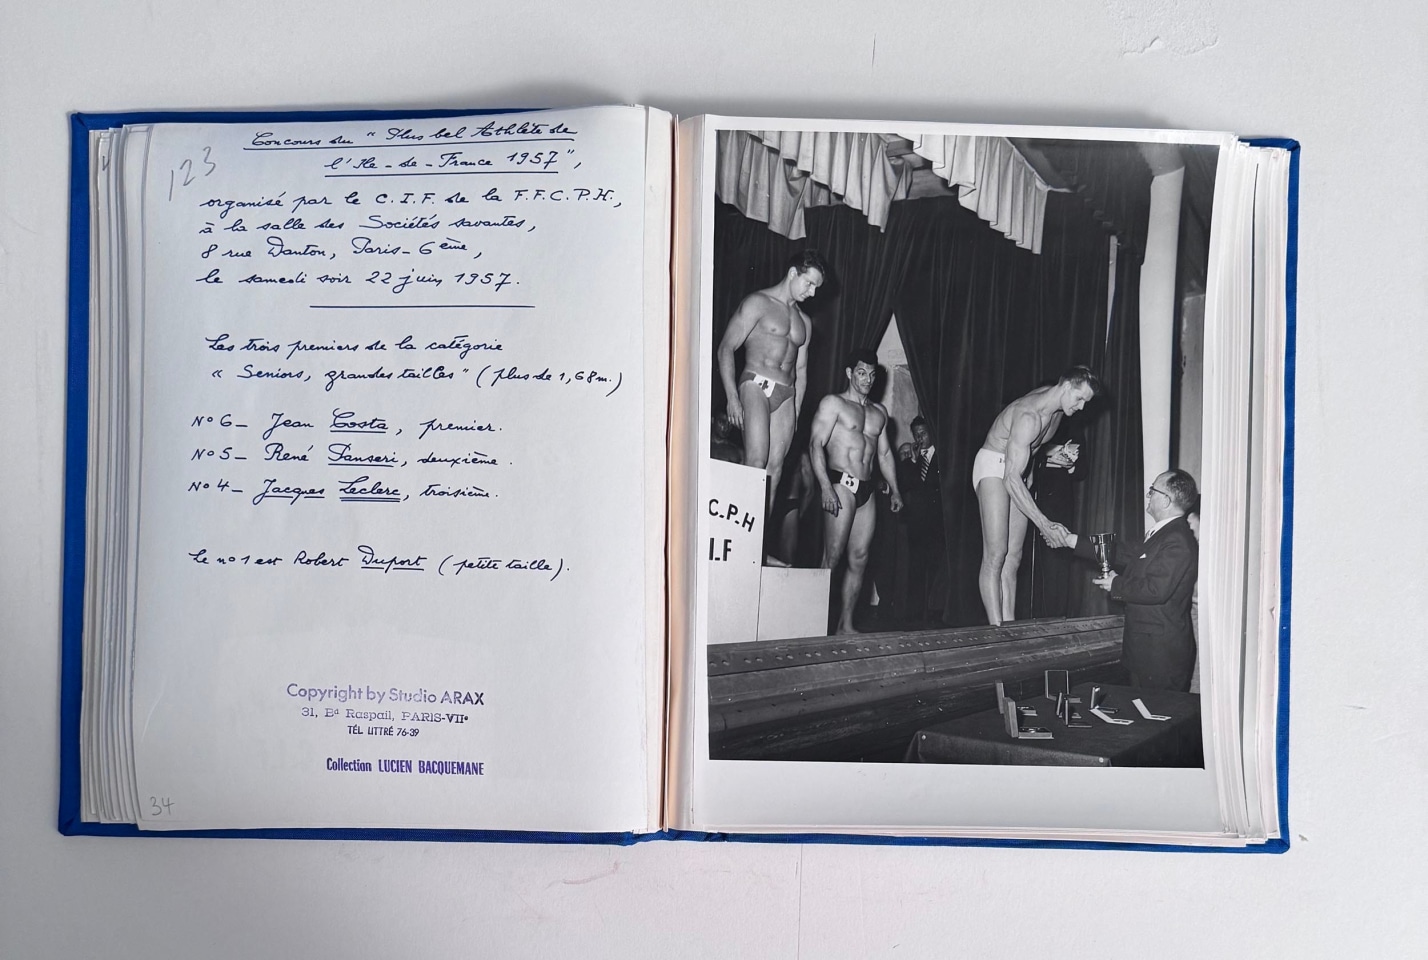 123
Concours du "Plus bel Athlète de
l'Ile-de-France 1957",
organisé par le C.I.F. de la F.F.C.P.H.,
à la salle des Sociétés savantes,
8 rue Danton, Paris-6ème,
le samedi soir 22 juin 1957.
Les trois premiers de la catégorie
« Seniors, grandes tailles" (plus de 1,68m.)
N° 6 - Jean Costa, premier.
N° 5 - René Panseri, deuxième.
N° 4 - Jacques Leclerc, troisième.
Le n° 1 est Robert Duport (petite taille).
Copyright by Studio ARAX
31, Bd Raspail, PARIS-VIIe
TÉL LITTRÉ 76-39
Collection LUCIEN BACQUEMANE
34
4
5
C.P.H
I.F